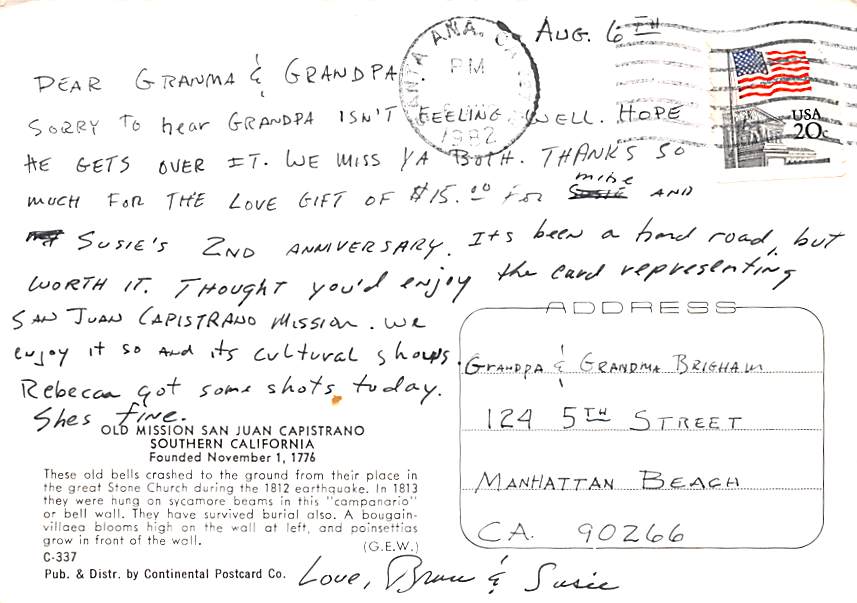 Aug. 6TH
SANTA ANA, CA
PM
1982
USA
20c
Dear Granma & Grandpa,
Sorry to hear Grandpa isn't feeling well. Hope
he gets over it. We miss ya both. Thanks so
much for the love gift of $15.00 for mine and
Susie's 2nd anniversary. Its been a hard road, but
worth it. Thought you'd enjoy the card representing
San Juan Capistrano Mission. We
enjoy it so and its cultural shows.
Rebecca got some shots today.
Shes fine.
Love, Bruce & Susie
ADDRESS
Grandpa & Grandma Brigham
124 5TH Street
Manhattan Beach
CA. 90266
OLD MISSION SAN JUAN CAPISTRANO
SOUTHERN CALIFORNIA
Founded November 1, 1776
These old bells crashed to the ground from their place in
the great Stone Church during the 1812 earthquake. In 1813
they were hung on sycamore beams in this "campanario"
or bell wall. They have survived burial also. A bougain-
villaea blooms high on the wall at left, and poinsettias
grow in front of the wall.
(G.E.W.)
C-337
Pub. & Distr. by Continental Postcard Co.